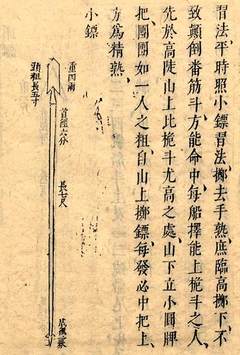 習法平時照小鏢習法擲去手熟庶臨擲下不
致顛倒番筋斗方能命中每船擇能上桅斗之人
先於高陡山上比桅斗尤高之處山下立小圓牌
把團團如一人之粗自山上擲鏢每發必中把上
方爲精熟
小鏢
重四兩
粗長五寸
首徑六分
長七尺